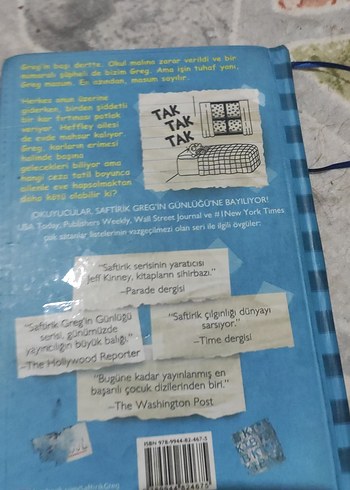 Greg'in başı dertte. Okul malına zarar verildi ve bir
numaralı şüpheli de bizim Greg. Ama işin tuhaf yanı,
Greg masum. En azından, masum sayılır.
Herkes onun üzerine
giderken, birden şiddetli
bir kar fırtınası patlak
veriyor. Heffley ailesi
de evde mahsur kalıyor.
Greg, karların erimesi
halinde başına
gelecekleri biliyor ama
hangi ceza tatil boyunca
ailenle eve kapsolmaktan
daha kötü olabilir ki?
TAK
TAK
TAK
OKUYUCULAR, SAFTİRİK GREG'İN GÜNLÜĞÜ'NE BAYILIYOR!
USA Today, Publishers Weekly, Wall Street Journal ve #1 New York Times
çok satanlar listelerinin vazgeçilmezi olan seri ile ilgili övgüler:
"Saftirik serisinin yaratıcısı
Jeff Kinney, kitapların sihirbazı."
–Parade dergisi
"Saftirik Greg'in Günlüğü
serisi, günümüzde
yayıncılığın büyük balığı."
–The Hollywood Reporter
"Saftirik çılgınlığı dünyayı
sarsıyor."
–Time dergisi
"Bugüne kadar yayınlanmış en
başarılı çocuk dizilerinden biri."
–The Washington Post
ISBN 978-9944-82-467-5